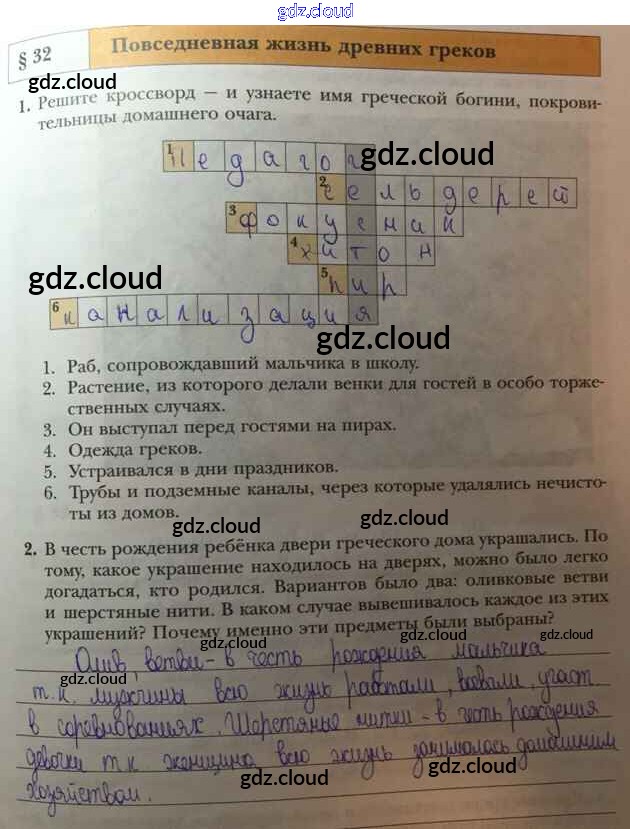 gdz.cloud
§ 32
Повседневная жизнь древних греков
gdz.cloud
1. Решите кроссворд — и узнаете имя греческой богини, покрови-
тельницы домашнего очага.
1 Педагог
gdz.cloud
2 сельдерей
3 фокусник
4 хитон
gdz.cloud
5 пир
6 канализация
gdz.cloud
1. Раб, сопровождавший мальчика в школу.
2. Растение, из которого делали венки для гостей в особо торже-
ственных случаях.
3. Он выступал перед гостями на пирах.
4. Одежда греков.
5. Устраивался в дни праздников.
6. Трубы и подземные каналы, через которые удалялись нечисто-
ты из домов.
gdz.cloud
gdz.cloud
2. В честь рождения ребёнка двери греческого дома украшались. По
тому, какое украшение находилось на дверях, можно было легко
догадаться, кто родился. Вариантов было два: оливковые ветви
и шерстяные нити. В каком случае вывешивалось каждое из этих
украшений? Почему именно эти предметы были выбраны?
gdz.cloud
gdz.cloud
gdz.cloud
Олив. ветви - в честь рождения мальчика
т.к. мужчины всю жизнь работали, воевали, участ
в соревнованиях. Шерстяные нитки - в честь рождения
девочки т.к. женщина всю жизнь занималась домашним
хозяйством.
gdz.cloud
gdz.cloud